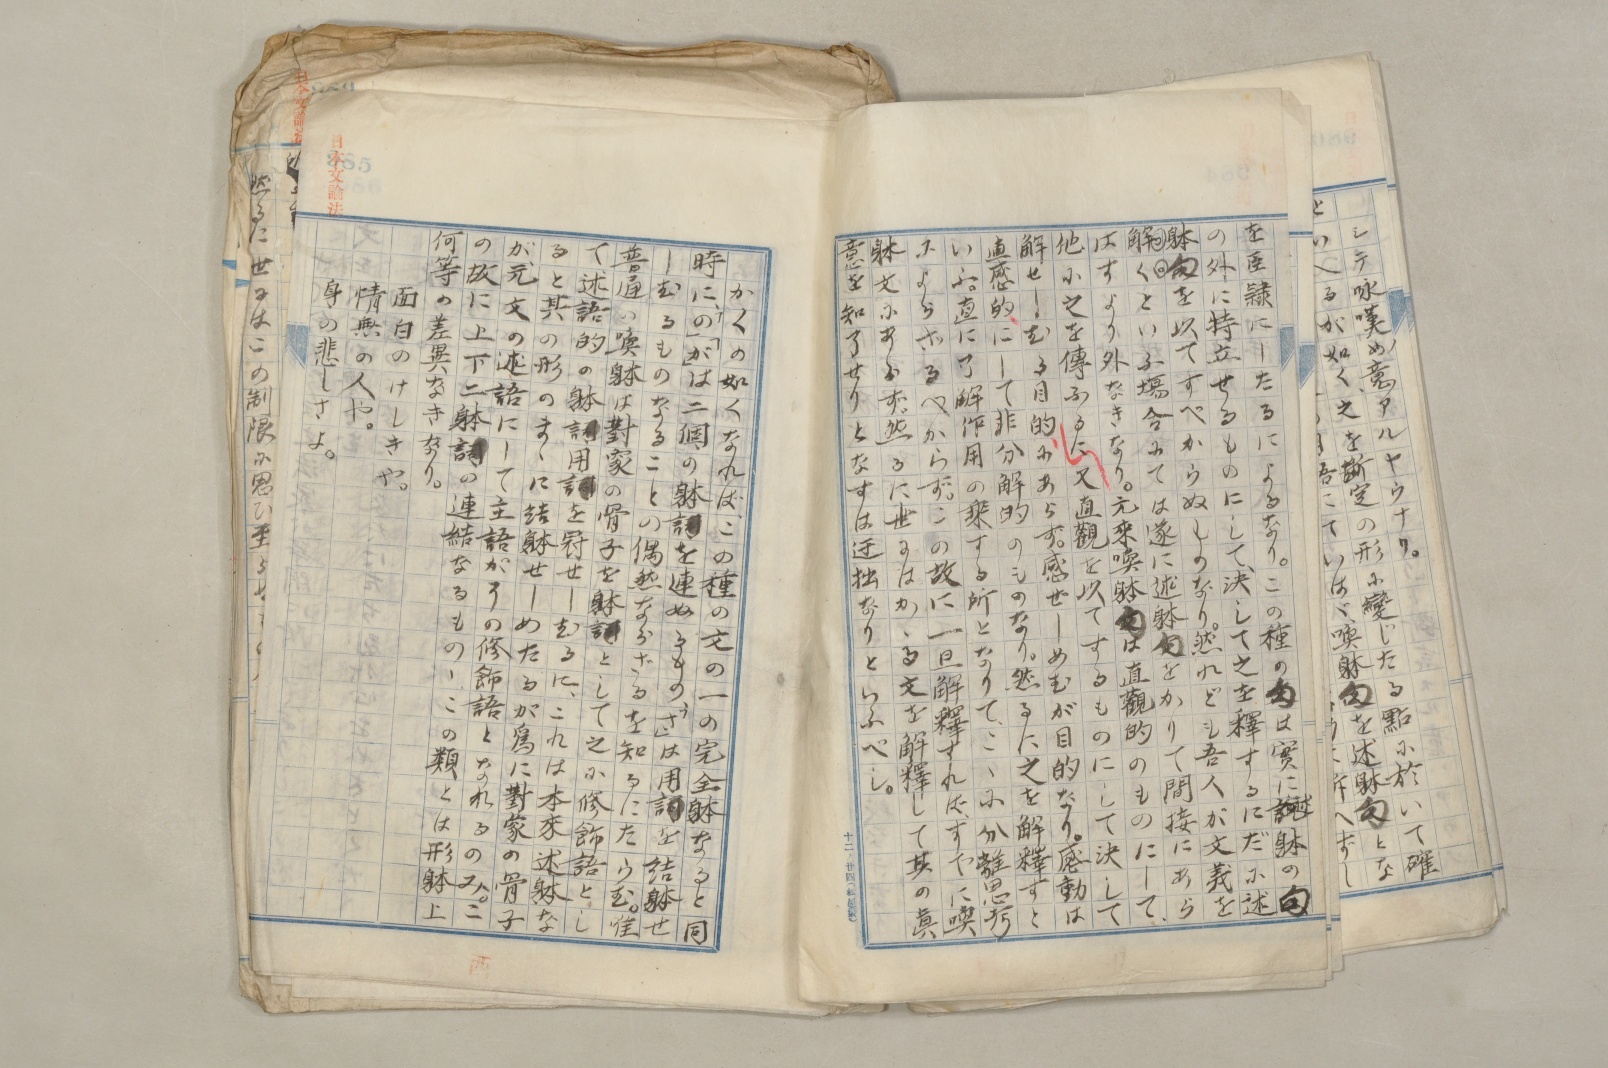 シテ咏嘆の意アルヤウナリ。
点に於いて確
といへるが如く之を断定の形に變じたる點に於いて確
いはゞ、喚躰句を述躰句とな
を臣隷にしたるによるなり。この種の句は實に述躰の句
の外に特立せるものにして、決して之を釋するにだに述
躰句を以てすべからぬものなり。然れども吾人が文義を
解くといふ塲合にては遂に述躰句をかりて間接にあら
はすより外なきなり。元來喚躰句は直觀的のものにして、
他に之を傳ふるに又直觀を以てするものにして決して
解せしむる目的にあらず。感ぜしめむが目的なり。感動は
直感的にして非分解的のものなり。然るに之を解釋すと
いふ。直に了解作用の乘する所となりて、こゝに分離思考
によらざるべからず。この故に一旦解釋すれば、すでに喚
躰文にあらず。然るに世にはかゝる文を解釋して其の眞
意を知了せりとなすは迂拙なりといふべし。
十二ノ廿四
日本文論法
885
かくの如くなれば、この種の文の一の完全躰なると同
時に、「の」「が」は二個の躰詞を連ぬるもの、「さ」は用詞を結躰せ
しむるものなることの偶然ならざるを知るにたらむ。惟
普通の喚躰は對象の骨子を躰詞として之に修飾語とし
て述語的の躰詞用詞を冠せしむるに、これは本來述躰な
ると其の形のまゝに結躰せしめたるが爲に對象の骨子
が、元文の述語にして主語がその修飾語となれるのみ。こ
の故に上下二躰詞の連結なるもの、この類とは形躰上
何等の差異なきなり。
面白のけしきや。
情無の人や。
身の悲しさよ。
日本文論法
然るに世にはこの制限に思ひ至らず